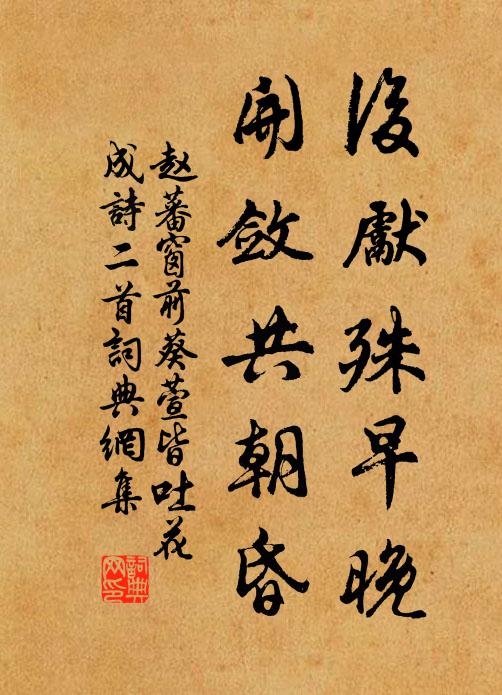 後獻殊早晚
開斂共朝昏
赵蕃窗前葵萱皆吐花
成詩二首詞典網集
詞典网印